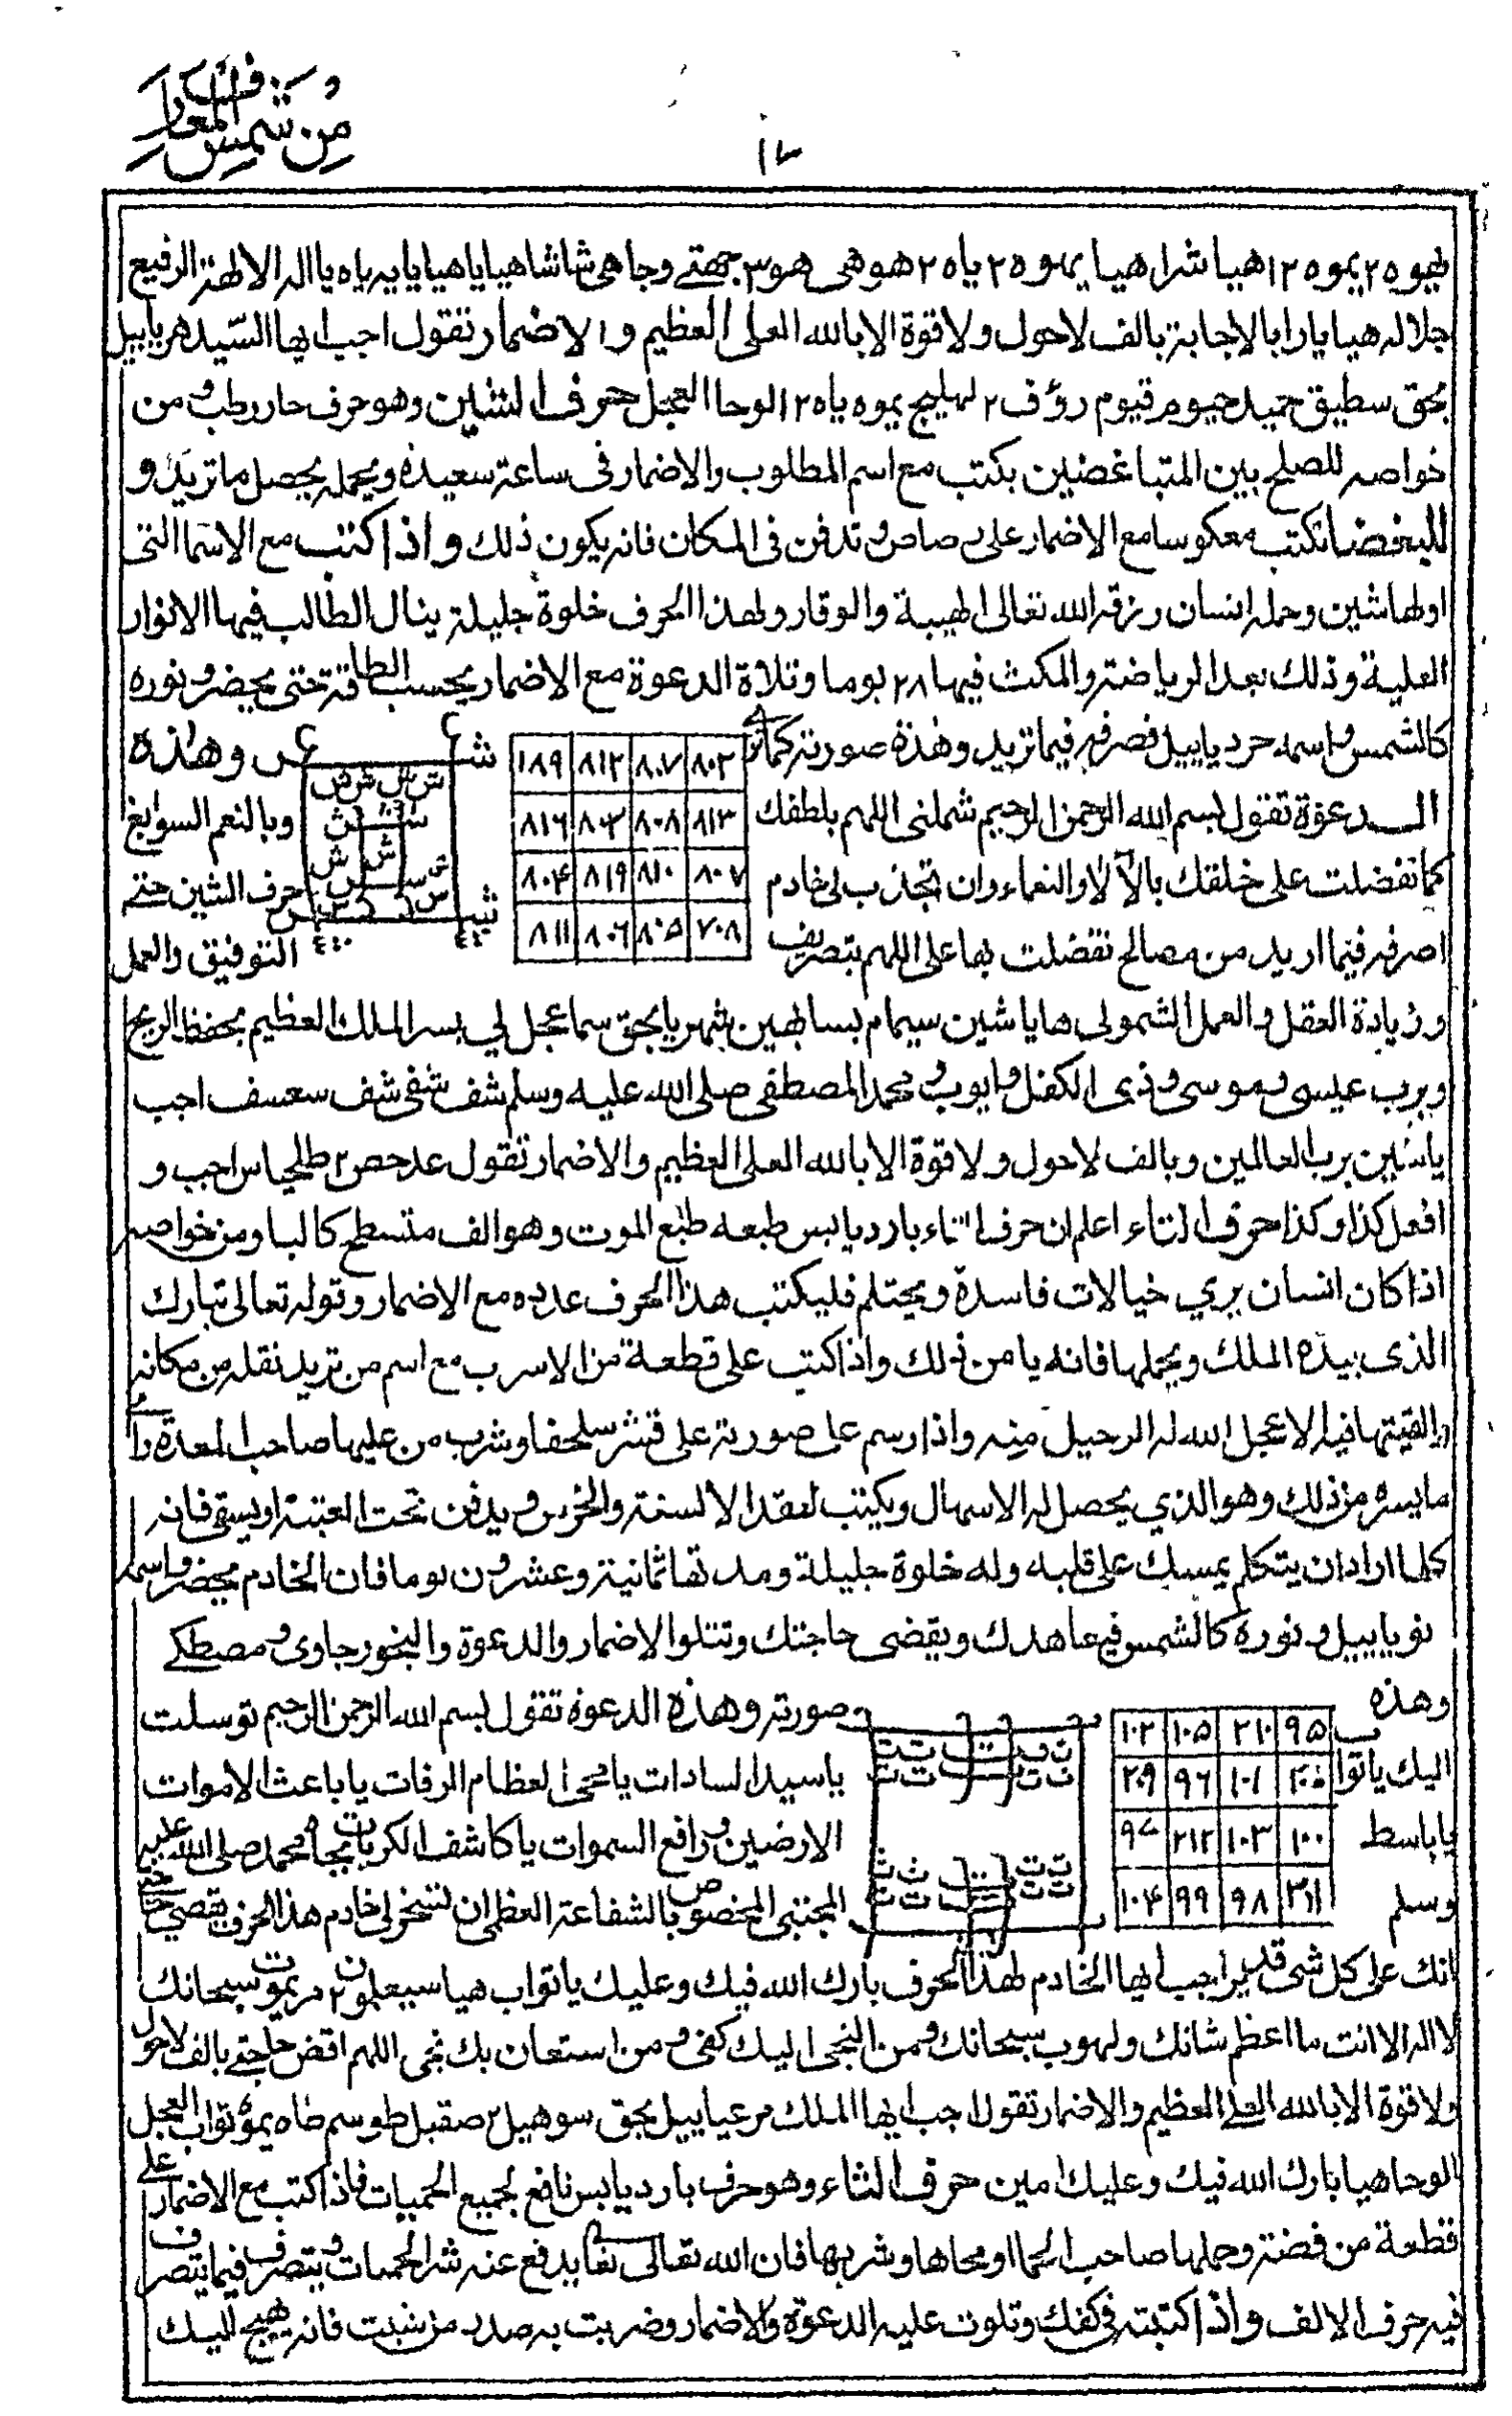 من شمس المعارف
طيوه ٢٥ يموه ١٢٥ هيا شراهيا يموه ٢٥ ياه ٢٥ هوهى هو ٣ جهتے وجاهى شاشاهيا ياهيا يا يه ياه يا اله الالهة الرفيع
جلاله هيا يارا بالاجابة بالف لاحول ولا قوة الا بالله العلى العظيم والاضمار تقول اجب ايها السّيد هريابيل
بحق سطيق حميد حيوم قيوم رؤف ٢ لهليج يموه ياه ١٢ الوحا العجل حرف الشين وهو حرف حار رطب ومن
خواصه للصلح بين المتباغضين يكتب مع اسم المطلوب والاضمار فى ساعة سعيدة ويحمله يحصل ما تريد و
للبغضا تكتب معكوسا مع الاضمار على رصاص وتدفن فى المكان فانه يكون ذلك واذا كتب مع الاسما التى
اولها شين وحمله انسان رزقه الله تعالى الهيبة والوقار ولهذا الحرف خلوة جليلة ينال الطالب فيها الانوار
العلية وذلك بعد الرياضة والمكث فيها ٢٨ يوما وتلاة الدعوة مع الاضمار بحسب الطاقة حتى يحضر ونوره
كالشمس واسمه حرديابيل فصرفه فيما تريد وهذه صورته كما ترى
٨٠٢ ٨٠٧ ٨١٢ ١٨٩
شـ ش وهذه
الدعوة تقول بسم الله الرحمن الرحيم شملنى اللهم بلطفك
٨١٣ ٨٠٨ ٨٠٣ ٨١٦
وبالنعم السوابغ
كما تفضلت على خلقك بالآلا والنعماء وان تجذب لى خادم
٨٠٧ ٨١٠ ٨١٩ ٨٠۴
حرف الشين حتے
اصرفه فيما اريد من مصالح تفضلت بها على اللهم بتصريف
٧٠٨ ٨٠۵ ٨٠٦ ٨١١
التوفيق والعمل
وزيادة العقل والعمل الشمولى ها يا شين سيمام بسالهين بشهريا بحق سما عجل لي بسر الملك العظيم بحفظ الريح
وبرب عيسى وموسى وذى الكفل وايوب ومحمد المصطفى صلى الله عليه وسلم شف شفى شف سعسف اجب
ياشين برب العالمين وبالف لاحول ولا قوة الا بالله العلى العظيم والاضمار تقول عدحص ٢ طلحياس اجب و
افعل كذا وكذا حرف التاء اعلم ان حرف التاء بارد يابس طبعه طبع الموت وهو الف متسطح كالبا ومن خواصه
اذا كان انسان يري خيالات فاسدة ويحتلم فليكتب هذا الحرف عدده مع الاضمار وقوله تعالى تبارك
الذى بيده الملك ويحملها فانه يامن ذلك واذا كتب على قطعة من الاسرب مع اسم من تريد نقله من مكانه
والقيتها فيه الا عجل الله له الرحيل منه واذا رسم على صورته على قشر سلحفا وشرب من عليها صاحب المعدة
ما يسره من ذلك وهو الذي يحصل له الاسهال ويكتب لعقد الالسنة والخرس ويدفن تحت العتبة او يسقى فانه
كلما اراد ان يتكلم يمسك على قلبه وله خلوة جليلة ومدتها ثمانية وعشرون يوما فان الخادم يحضر واسمه
نويابيل ونوره كالشمس فيعاهدك ويقضى حاجتك وتتلوا الاضمار والدعوة والبخور جاوى ومصطكے
وهذه
٩۵ ٢١٠ ١٠۵ ١٠٢
صورته وهذه الدعوة تقول بسم الله الرحمن الرحيم توسلت
اليك يا توا ب
١٠١ ٩٦ ٢٠٩
ياسيد السادات يا محى العظام الرفات يا باعث الاموات
ياباسط
١٠٠ ١٠٣ ٢١٢
الارضين ورافع السموات يا كاشف الكربات بجاه محمد صلى الله عليه
وسلم
٩٨ ٩٩ ١٠۴
المجتبى المخصوص بالشفاعة العظمى ان تسخر لى خادم هذا الحرف يقضى
انك على كل شى قدير اجب ايها الخادم لهذا الحرف بارك الله فيك وعليك يا تواب هيا سيعلون ٢ مريموت سبحانك
لا اله الا انت ما اعظم شانك ولهوب سبحانك ومن التجى اليك كفى ومن استعان بك نجى اللهم اقض حاجتے بالف لاحول
ولا قوة الا بالله العلى العظيم والاضمار تقول اجب ايها الملك مرعيابيل بحق سوهيل ٢ صقبل طوسم طاه يمؤ تواب العجل
الوحا هيا بارك الله فيك وعليك امين حرف الثاء وهو حرف بارد يابس نافع لجميع الحميات فاذا كتب مع الاضمار على
قطعة من فضة وحملها صاحب الحما او محاها وشربها فان الله تعالى يدفع عنه شر الحميات ويتصرف فيما يتصرف
فيه حرف الالف واذا كتبته فى كفك وتلوت عليه الدعوة والاضمار وضربت به صدر من شيت فانه يهيج اليك